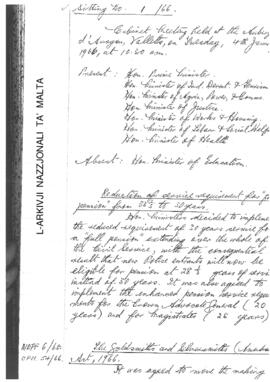 Sitting No. 1 /66.
Cabinet Meeting held at the Auberge
d'Aragon, Valletta, on Tuesday, 4th Janu
1966, at 10.20 a.m.
Present : Hon. Prime Minister
Hon. Minister of Ind. Devel. & Tourism
Hon. Minister of
Hon. Minister of Justice.
Hon. Minister of Works & Housing.
Hon. Minister of Labour & Social Welfa
Hon. Minister of Health
Absent: Hon. Minister of Education.
Reduction of service requirement for
pension from 33⅓ to 30 years.
Hon. Ministers decided to impleme
the reduced requirement of 30 years service fo
a "full pension" extending over the whole of
the Civil Service, with the consequential
result that new Police entrants will now be
eligible for pension at 28⅓ years of servic
instead of 30 years. It was also agreed to
implement the enhanced pension service require
ments for the Crown Advocate General (20
years) and for Magistrates (26 years)
MEFF 6/60.
OPM. 54/66.
The Goldsmiths and Silversmiths (Amendm
Act, 1966.
It was agreed to move the making
L-ARKIVJI NAZZJONALI TA' MALTA